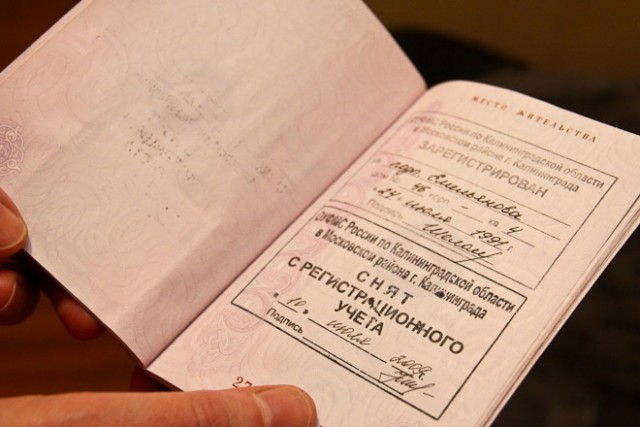 МЕСТО ЖИТЕЛЬСТВА
ОУФМС России по Калининградской области
в Московском районе г. Калининграда
ЗАРЕГИСТРИРОВАН
Емельянова
дом 46 корп - кв 4
"24" июля 1991г.
Подпись
ОУФМС России по Калининградской области
в Московском районе г. Калининграда
СНЯТ
С РЕГИСТРАЦИОННОГО
УЧЕТА
"10" июля 2009г
Подпись